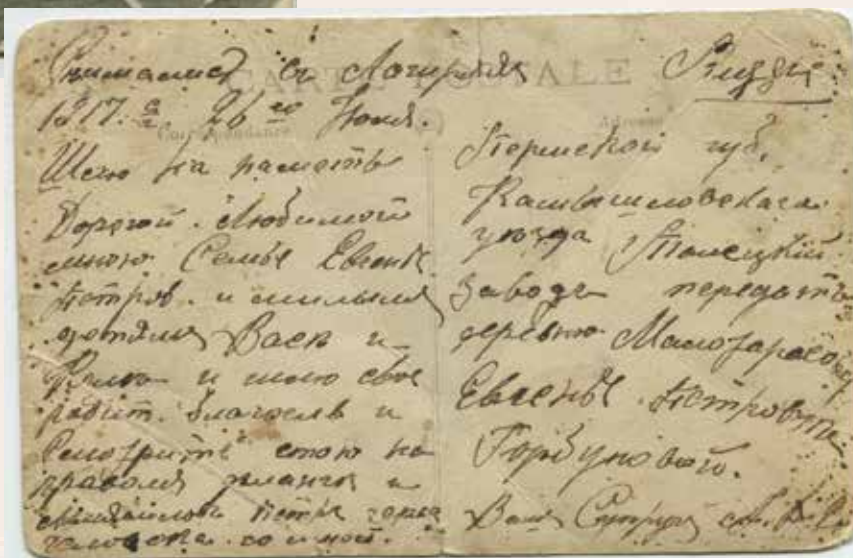 CARTE POSTALE
Correspondance
Adresse
Снимались въ Лагеряхъ
1917. г. 26 го Июня.
Шлю на память
Дорогой. Любимой
мною Семье Евгеньѣ
Петров. и милымъ
дѣтямъ Васѣ и
и шлю свое
родит. благослв и
стою на
правомъ фланги и
Петра
человека. со мной.
Пермской губ,
Камышловскаго
уѣзда Талецкій
Заводъ передать
деревню
Евгеньѣ. Петровнѣ
Горбуновой.
Вашъ Супругъ